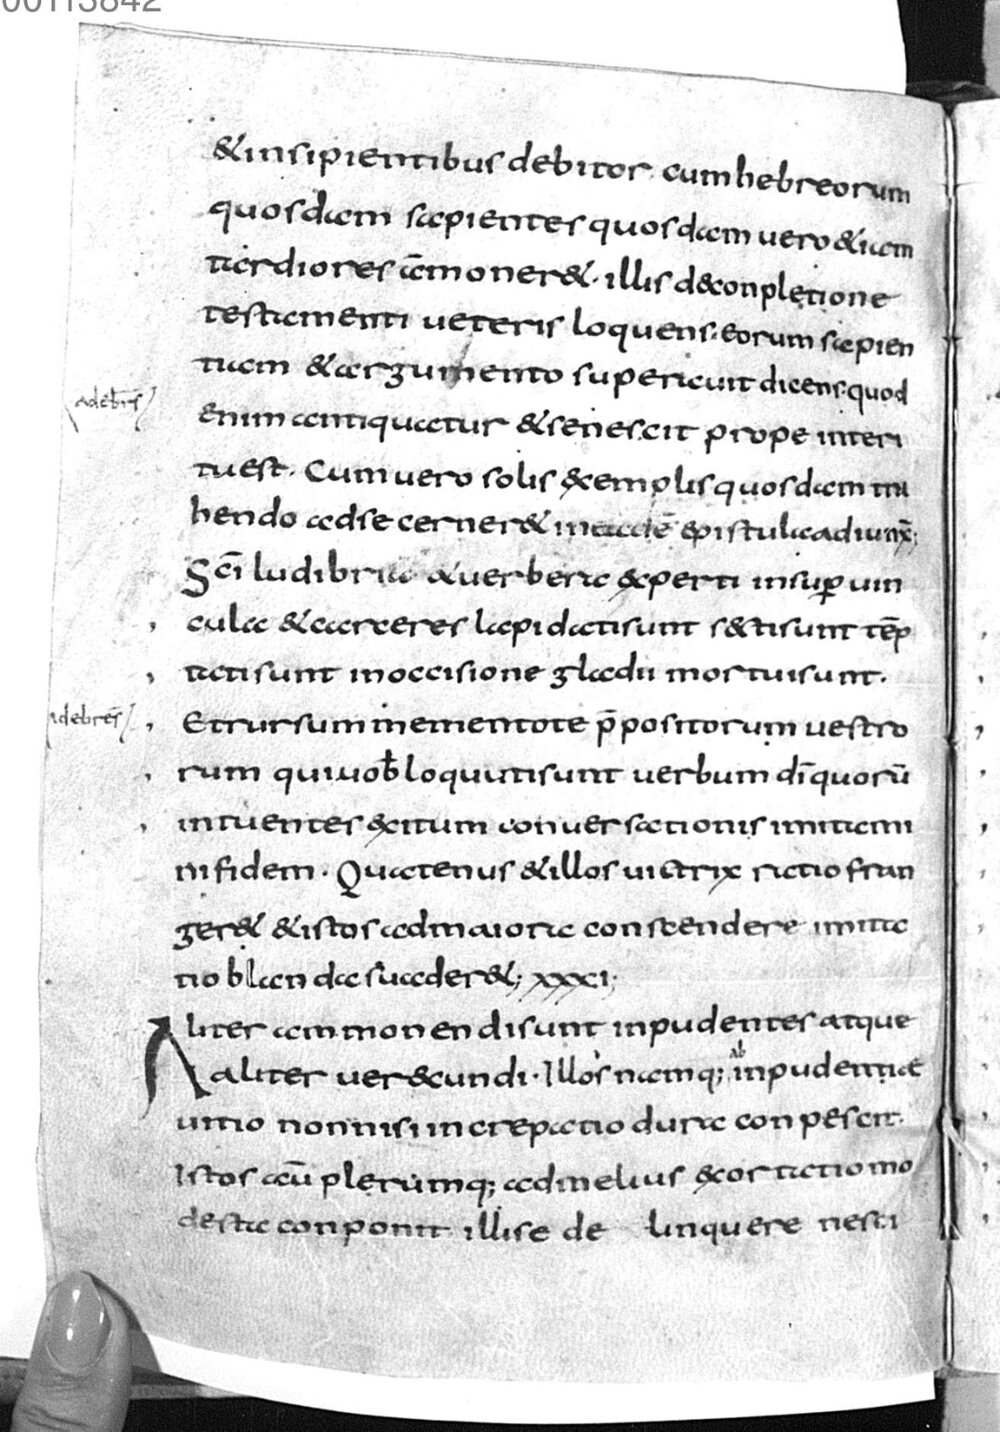 00113842
& insipientibus debitor. cum hebreorum
quosdam sapientes quosdam vero &iam
tardiores āmoner&. illis d&conplętione
testamenti veteris loquens. eorum sapien
tiam & argumento superavit dicens. quod
adebrēs
enim antiquatur & senescit prope interi
tu est. Cum vero solis &emplis quosdam tra
hendo ad se cerner& in eadē epistula adiunx̄;
Sc̄i ludibria & verbera experti insup̲ vin
cula & carceres lapidati sunt s&ti sunt tēp
tati sunt in occisione gladii mortui sunt.
adebrēs
Et rursum mementote p̄positorum vestro
rum qui vob̄ loquuti sunt verbum dī quorū
intuentes exitum conversationis imitami
ni fidem. Quatenus & illos victrix ratio fran
ger& & istos ad maiora conscendere imita
tio blanda suader&; xxxi;
Aliter ammonendi sunt inpudentes atque
aliter verecundi. Illos namq; ab inpudentiae
vitio non nisi increpatio dura conpescit.
Istos aū plerumq; ad melius exortatio mo
desta conponit. illi se delinquere nesci